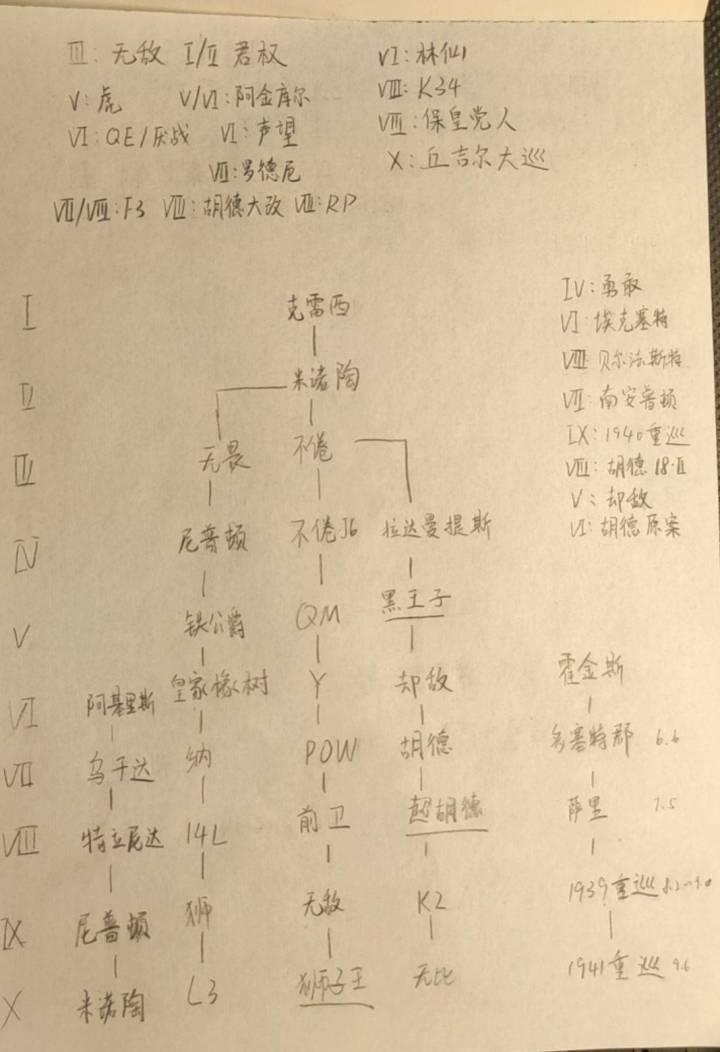 III: 无敌 I/II 君权 VI: 林仙
V: 虎 V/VI: 阿金库尔 VIII: K34
VI: QE/厌战 VI: 声望 VIII: 保皇党人
VII: 罗德尼 X: 丘吉尔大巡
VII/VIII: F3 VIII: 胡德大改 VII: RP
IV: 勇敢
I 克雷西
VI: 埃克塞特
VIII: 贝尔法斯特
II 米诺陶
VII: 南安普顿
IX: 1940重巡
III 无畏 不倦
VIII: 胡德 18·II
V: 却敌
IV 尼普顿 不倦J6 拉达曼提斯
VI: 胡德原案
V 铁公爵 QM 黑王子
VI 阿基里斯 皇家橡树 Y 却敌 霍金斯
VII 乌干达 纳 POW 胡德 多塞特郡 6.6
VIII 特立尼达 14L 前卫 超胡德 萨里 7.5
IX 尼普顿 狮 无敌 K2 1939重巡 8.2~9.0
X 米诺陶 L3 狮子王 无比 1941重巡 9.6